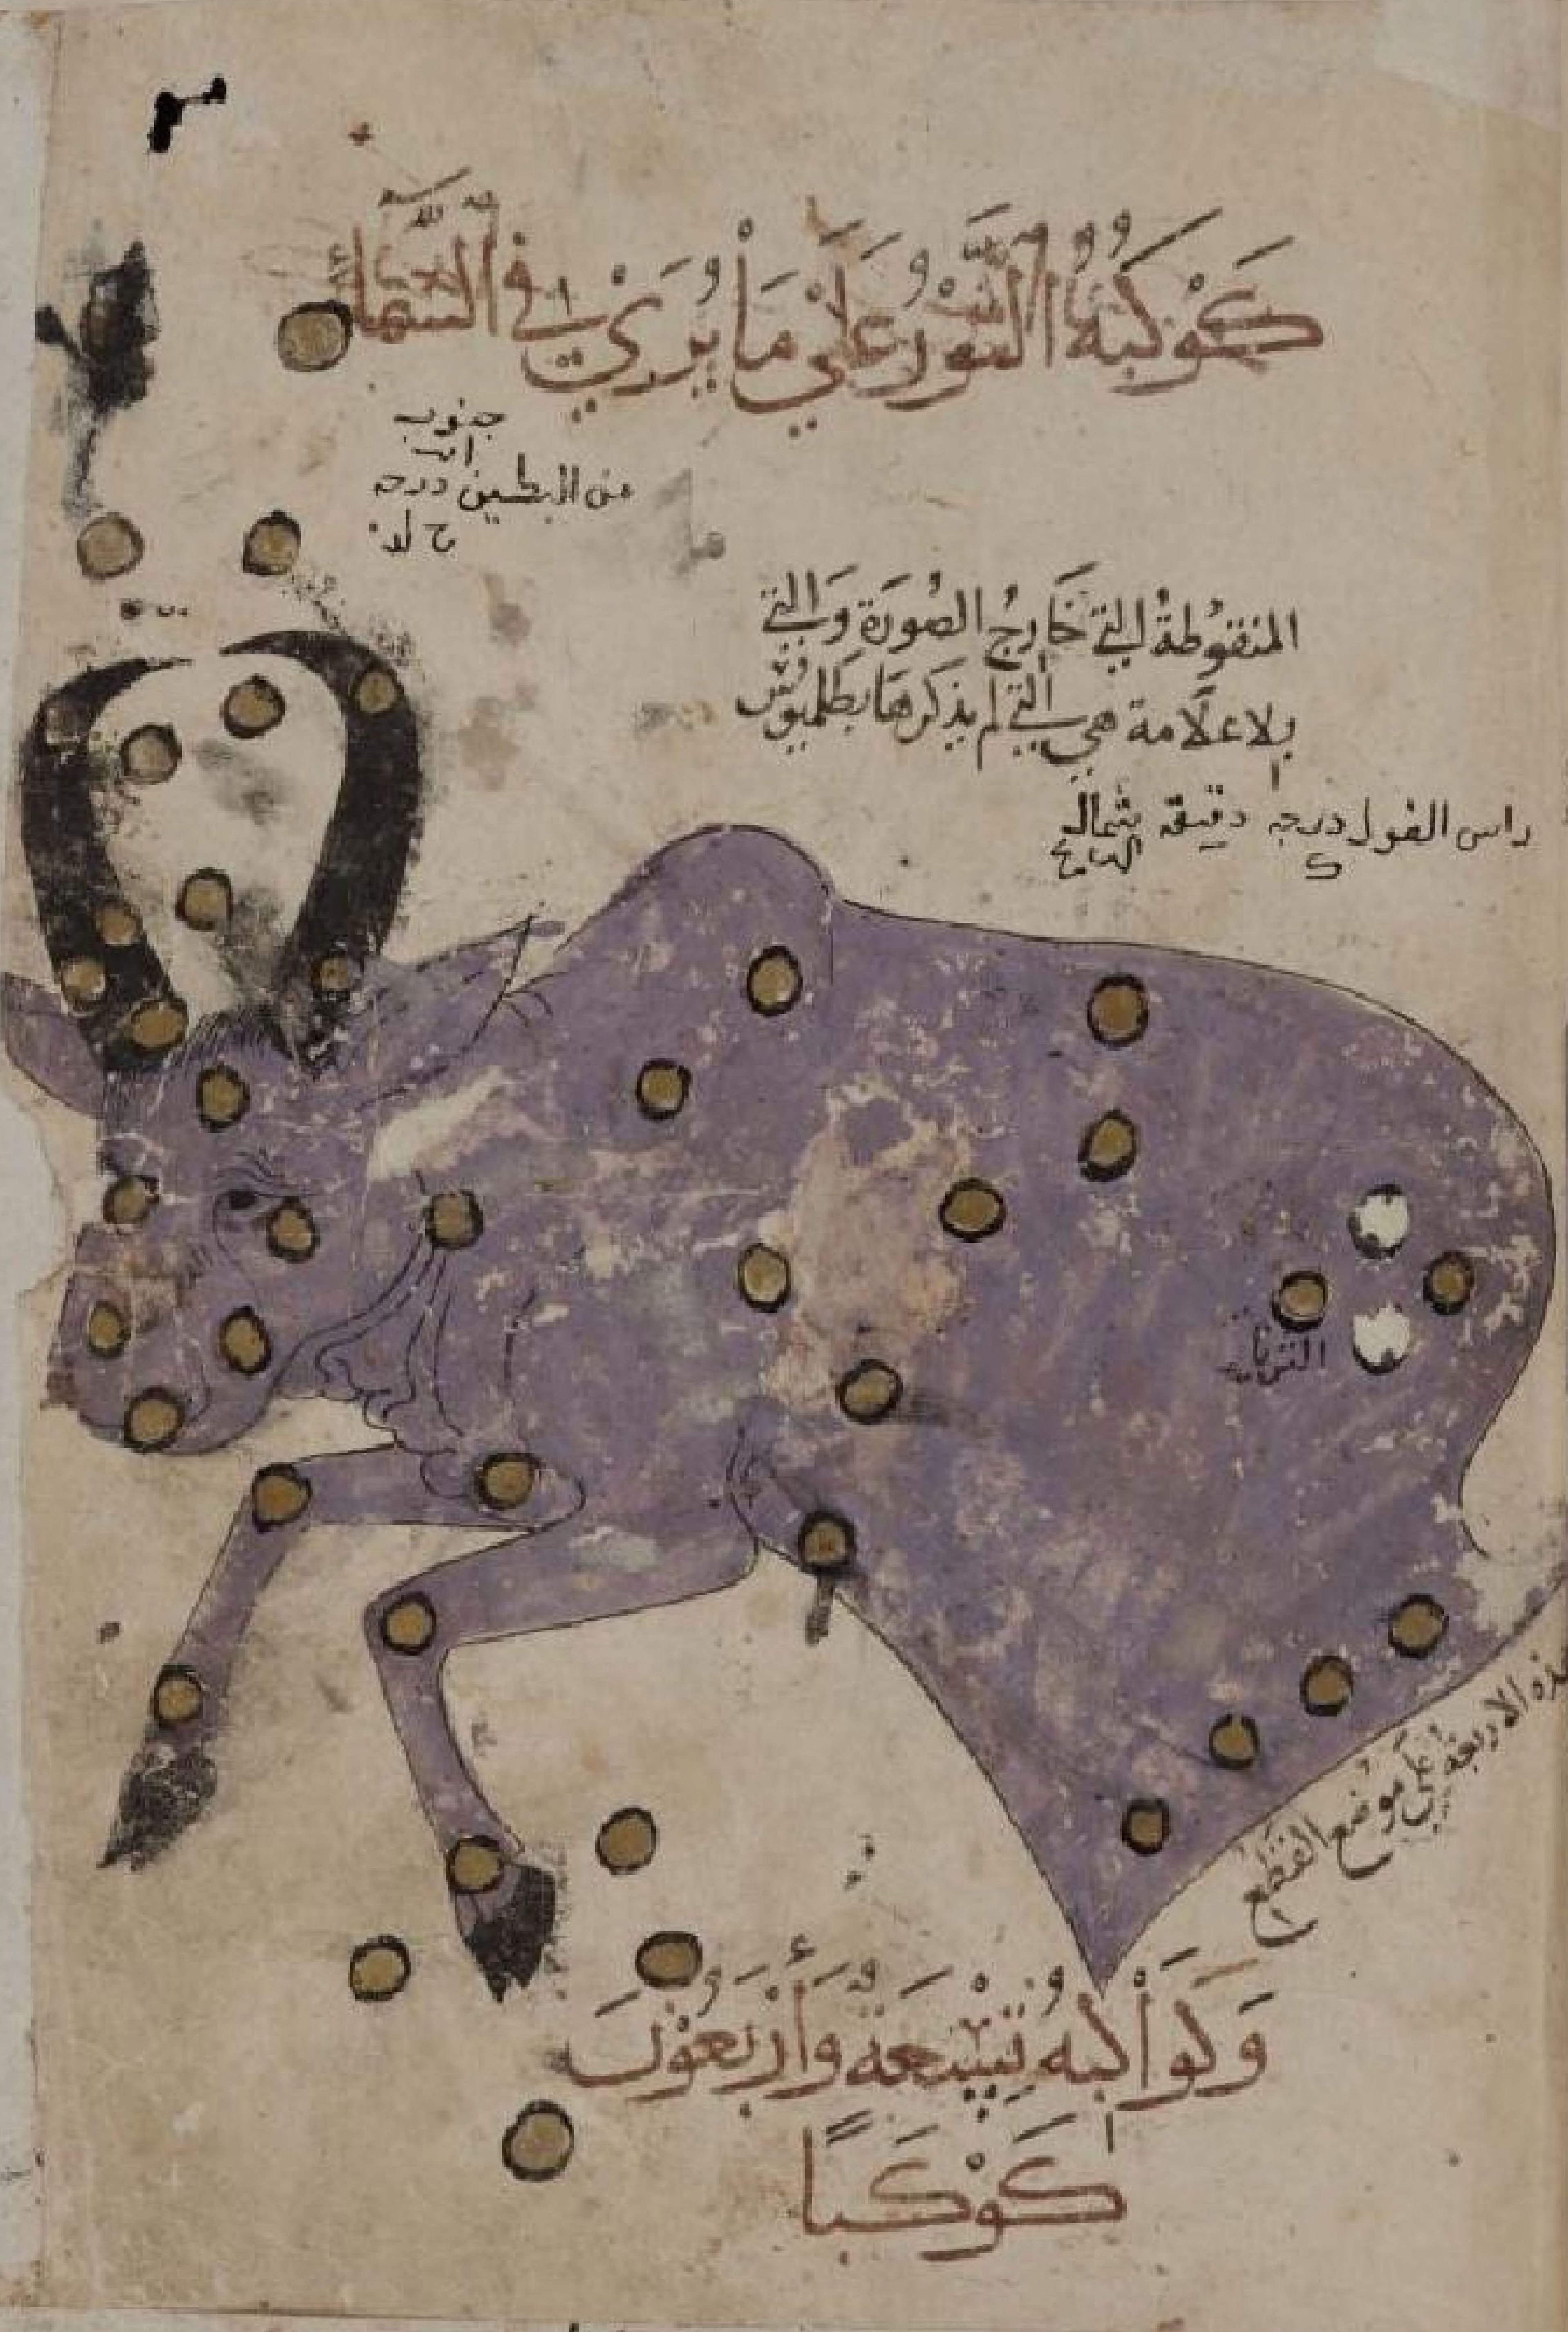 كَوْكَبَةُ الثَّوْرِ عَلَى مَا يُرَىٰ فِي السَّمَاءِ
جنوب
من البطين درجه
المنقُوطةُ التي خَارِجُ الصُورَة وَالتي
بلا علَامة هي التي لم يذكرها بطلميوس
راس الغول درجه دقيقه شمال
الثريا
هذه الاربعة على موضع القطع
وَكَوَاكِبُهُ تِسْعَةٌ وَأَرْبَعُونَ
كَوْكَبًا